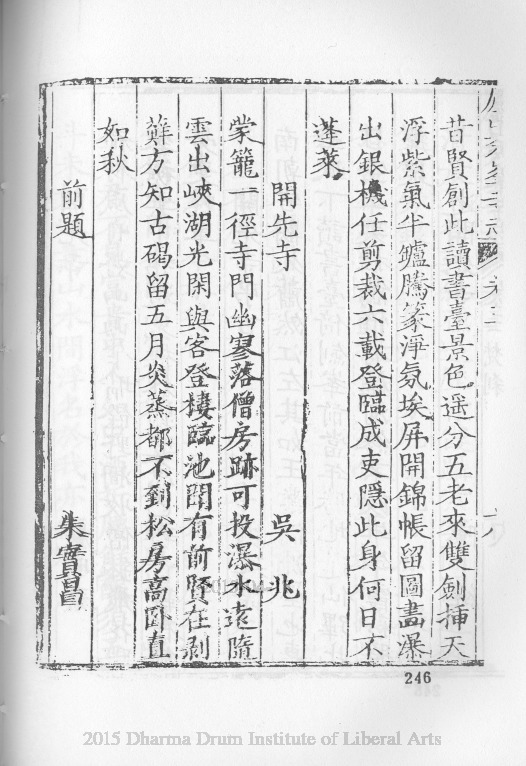 昔賢創此讀書臺景色遥分五老來雙劍挿天
浮紫氣半鑪騰篆淨氛埃屏開錦帳留圖畫瀑
出銀機任剪裁六載登臨成吏隱此身何日不
蓬萊
開先寺 吳兆
蒙籠一徑寺門幽寥落僧房跡可投瀑水遠隨
雲出峽湖光閑與客登樓臨池閣有前賢在剥
蘚方知古碣留五月炎蒸都不到松房高臥直
如秋
前題 朱寶昌
246
2015 Dharma Drum Institute of Liberal Arts